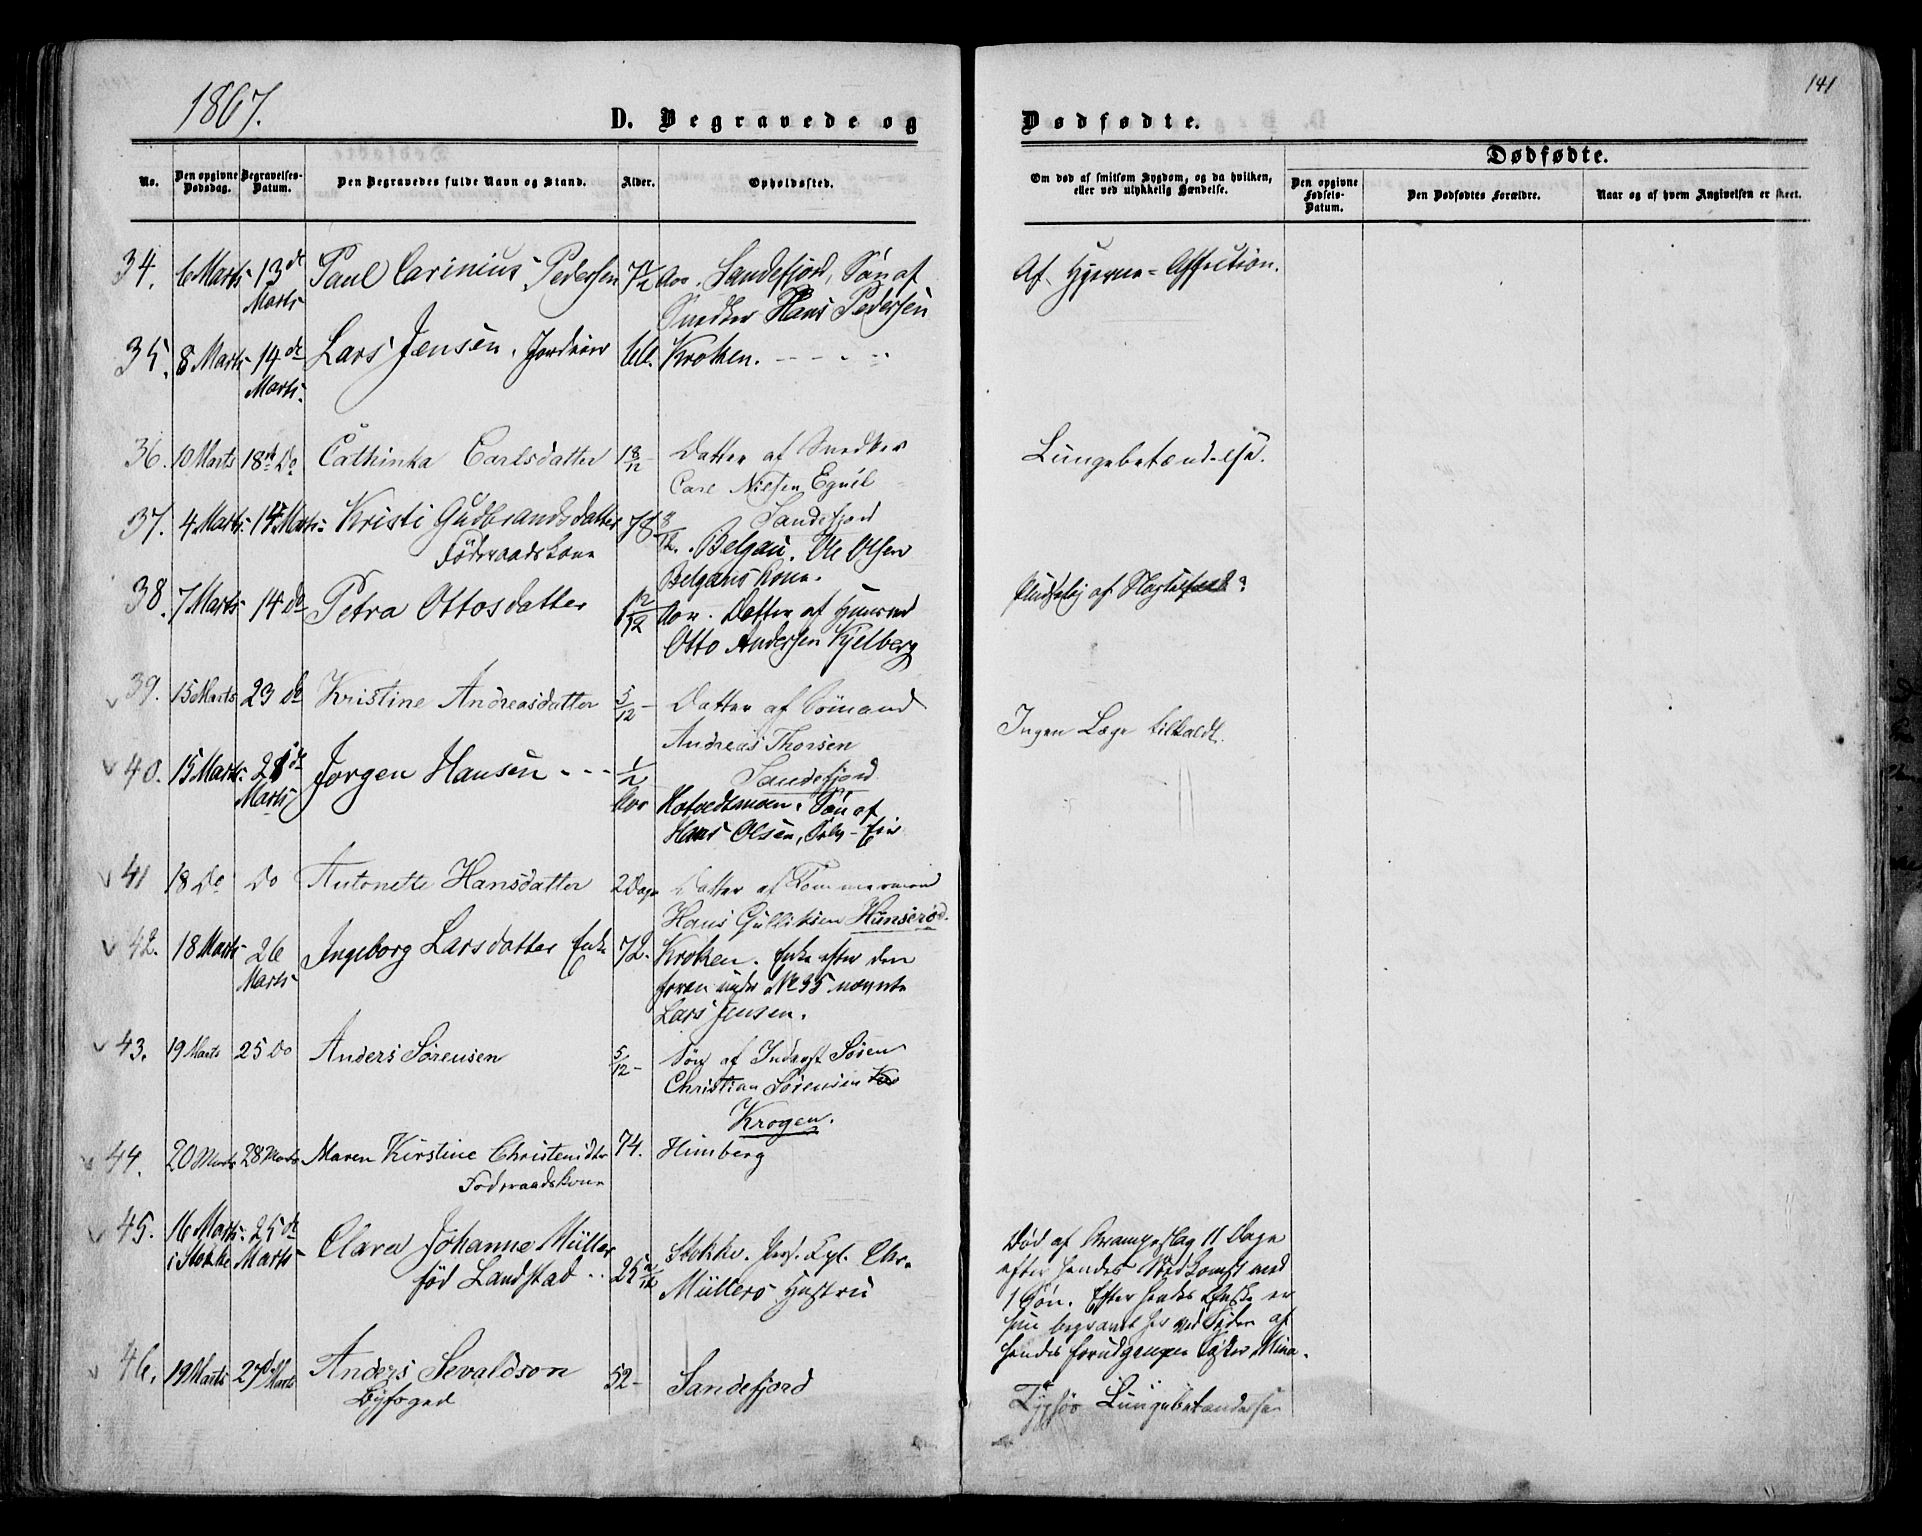 1867.
141
D. Begravede og
Dødfødte.
Dødfødte.
No.
Den opgivne Dødsdag.
Begravelses-Datum.
Den Begravedes fulde Navn og Stand.
Alder.
Opholdssted.
Om død af smitsom Sygdom, og da hvilken, eller ved ulykkelig Hændelse.
Den opgivne Fødsels-Datum.
Den Dødfødtes Forældre.
Naar og af hvem Angivelsen er skeet.
34. 6 Marts 13de Marts Paul Carinius Pedersen Aar. Sandefjord, Søn af
Snedker Hans Pedersen
Af Hjerne-Affection.
35. 8 Marts 14de Marts. Lars Jensen. 66. Kroken.
36. 10 Marts 18de Do Cathinka Carlsdatter 18/12 Datter af Snedker
Carl Nielsen
Sandefjord
Lungebetændelse.
37. 4 Marts 14 Marts Kristi Gudbrandsdatter 78 8/12. Belgau. Ole Olsen
Føderaadskone Belgaus Kone.
38. 7 Marts 14 do Petra Ottosdatter 12/12 Aar. Datter af
Otto Andersen Kjelberg
Pludselig af
39. 15 Marts 23 do Kristine Andreasdatter 5/12 Datter af Sømand
Andreas Thorsen
Sandefjord
Ingen Læge tilkaldt.
40. 15 Marts. 21de Marts Jørgen Hansen 1/12 Aar Søn af
Hans Olsen,
41 18 Do Do Antonette Hansdatter 2 Dage Datter af Tømmermand
Hans Gulliksen Hunserød.
42. 18 Marts 26 Marts Ingeborg Larsdatter Enke 72. Kroken. Enke efter den
foran under No 35 nævnte
Lars Jensen.
43. 19 Marts 25 Do Anders Sørensen 5/12 Søn af Inderst Søren
Christian Sørensen
Krogen.
44. 20 Marts 28 Marts Maren Kirstine Christensdtr 74. Himberg
Føderaadskone
45. 16 Marts i Stokke 25de Marts Clara Johanne Müller
født Landstad 25 Stokke. Chr.
Müllers Hustru
Død af Krampeslag 11 Dage
efter hendes Nedkomst med
1 Søn. Efter hendes Ønske er
hun begravet her ved Siden af
hendes forudgangne Søster Mina.
46. 19 Marts 27 Marts Anders Sevaldson 52 Sandefjord
Byfoged
Lungebetændelse